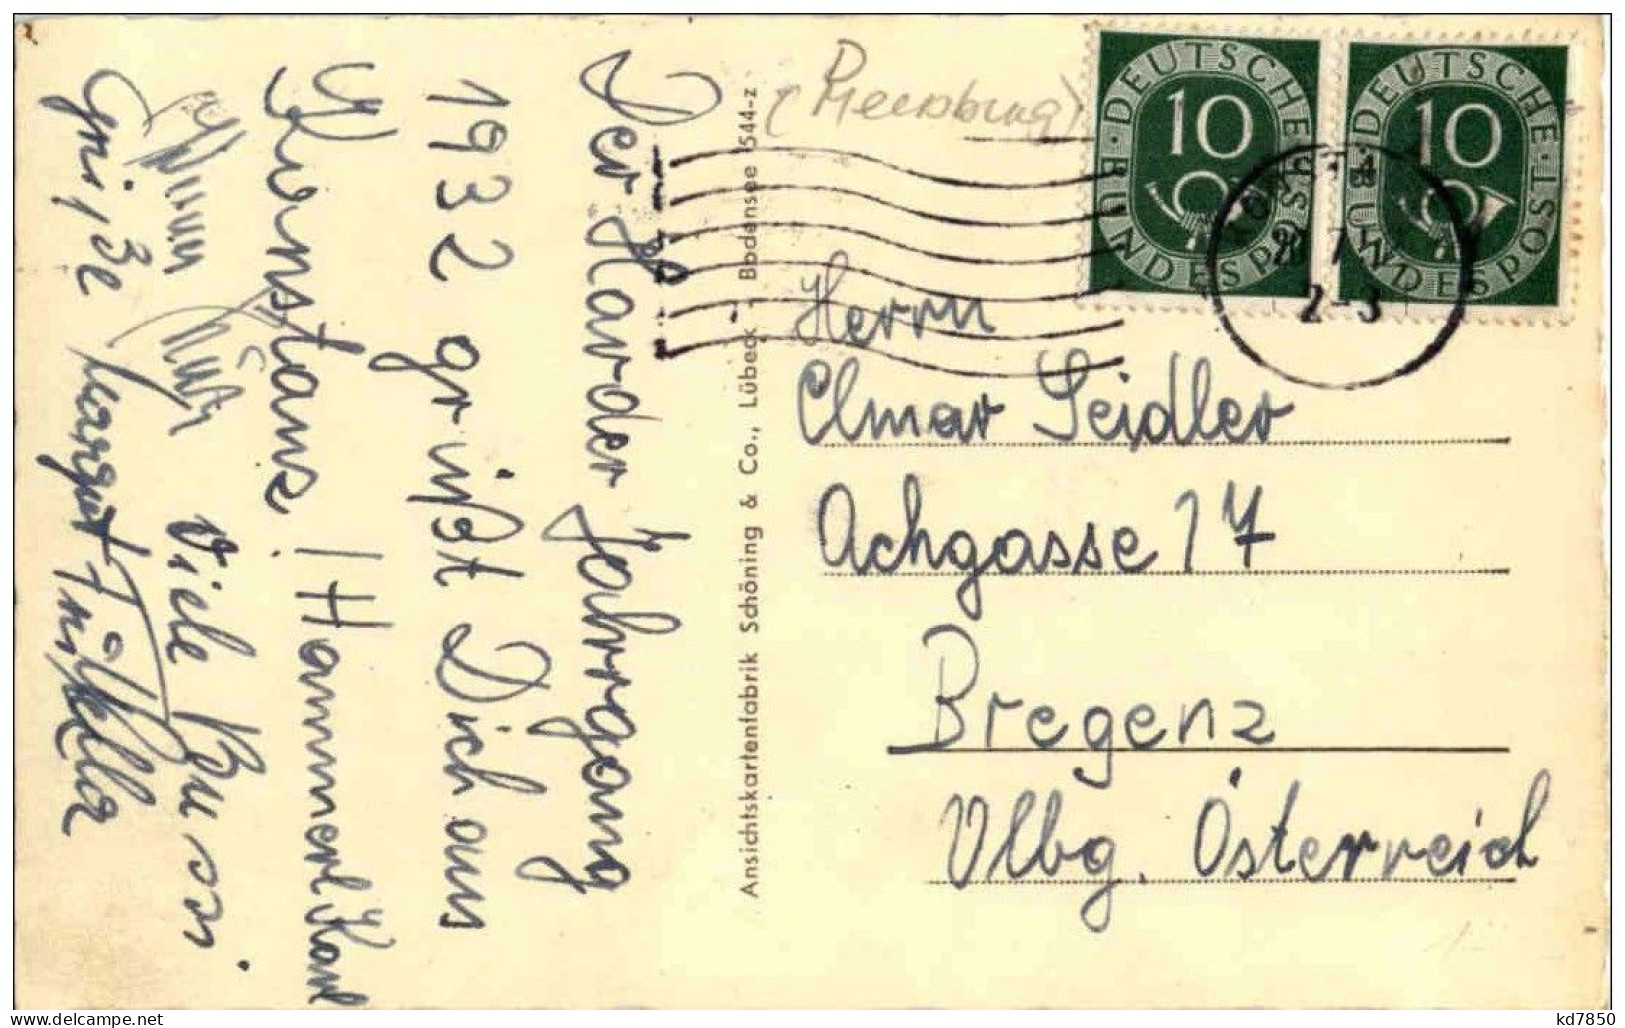 Der Harder Jahrgang
1932 grüßt Dich aus
Konstanz!
Hammerl Karl
Viele Bussi
Grüße Margrit
(Meersburg)
DEUTSCHE BUNDESPOST
10
DEUTSCHE BUNDESPOST
10
2-3
Herrn
Elmar Seidler
Achgasse 17
Bregenz
Vlbg. Österreich
Ansichtskartenfabrik Schöning & Co., Lübeck - Bodensee 544-z
kd7850